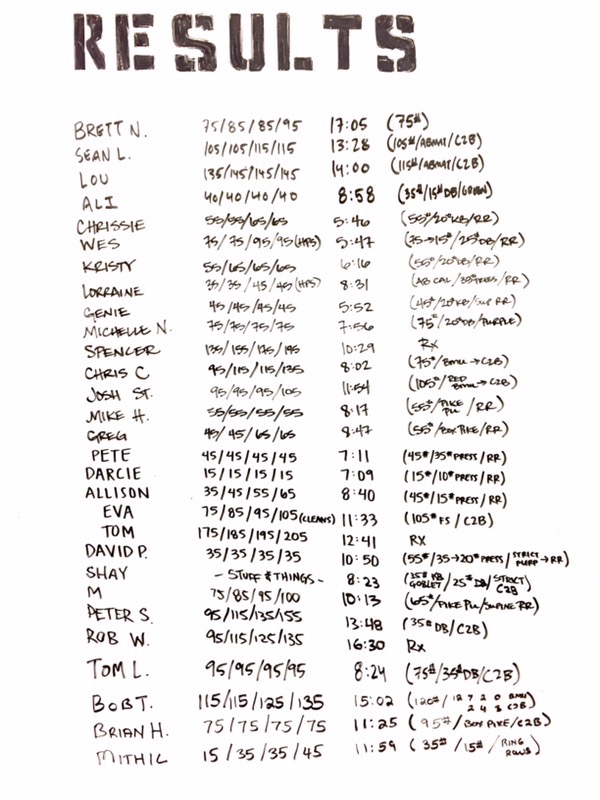 RESULTS
BRETT N. 75/85/85/95 17:05 (75#)
SEAN L. 105/105/115/115 13:28 (105#/ABMAT/C2B)
LOU 135/145/145/145 14:00 (115#/ABMAT/C2B)
ALI 40/40/40/40 8:58 (35#/15#DB/GREEN)
CHRISSIE 55/55/65/65 5:46 (55#/20#KB/RR)
WES 75/75/95/95(HPS) 5:47 (75→15#/25#DB/RR)
KRISTY 55/65/65/65 6:16 (55#/20#DB/RR)
LORRAINE 35/35/45/45(HPS) 8:31 (AB CAL/35#PRESS/RR)
GENIE 45/45/45/45 5:52 (45#/20#KB/SUP RR)
MICHELLE N. 75/75/75/75 7:56 (75#/20#DB/PURPLE)
SPENCER 135/155/175/195 10:29 RX
CHRIS C 95/115/115/135 8:02 (75#/BMU→C2B)
JOSH ST. 95/95/95/105 11:54 (105#/RED BMU→C2B)
MIKE H. 55/55/55/55 8:17 (55#/PIKE PU/RR)
GREG 45/45/65/65 8:47 (55#/BOX PIKE/RR)
PETE 45/45/45/45 7:11 (45#/35#PRESS/RR)
DARCIE 15/15/15/15 7:09 (15#/10#PRESS/RR)
ALLISON 35/45/55/65 8:40 (45#/15#PRESS/RR)
EVA 75/85/95/105(CLEANS) 11:33 (105# FS/C2B)
TOM 175/185/195/205 12:41 RX
DAVID P. 35/35/35/35 10:50 (55#/35→20#PRESS/STRICT PUPP→RR)
SHAY - STUFF & THINGS - 8:23 (35# KB GOBLET/25# DB/STRICT C2B)
M 75/85/95/100 10:13 (65#/PIKE PU/SUPINE RR)
PETER S. 95/115/135/155 13:48 (35# DB/C2B)
ROB W. 95/115/125/135 16:30 RX
TOM L. 95/95/95/95 8:24 (75#/35#DB/C2B)
BOB T. 115/115/125/135 15:02 (120#/12 7 2 0 BMU 2 4 3 C2B)
BRIAN H. 75/75/75/75 11:25 (95#/BOX PIKE/C2B)
MITHIL 15/35/35/45 11:59 (35#/15#/RING ROWS)